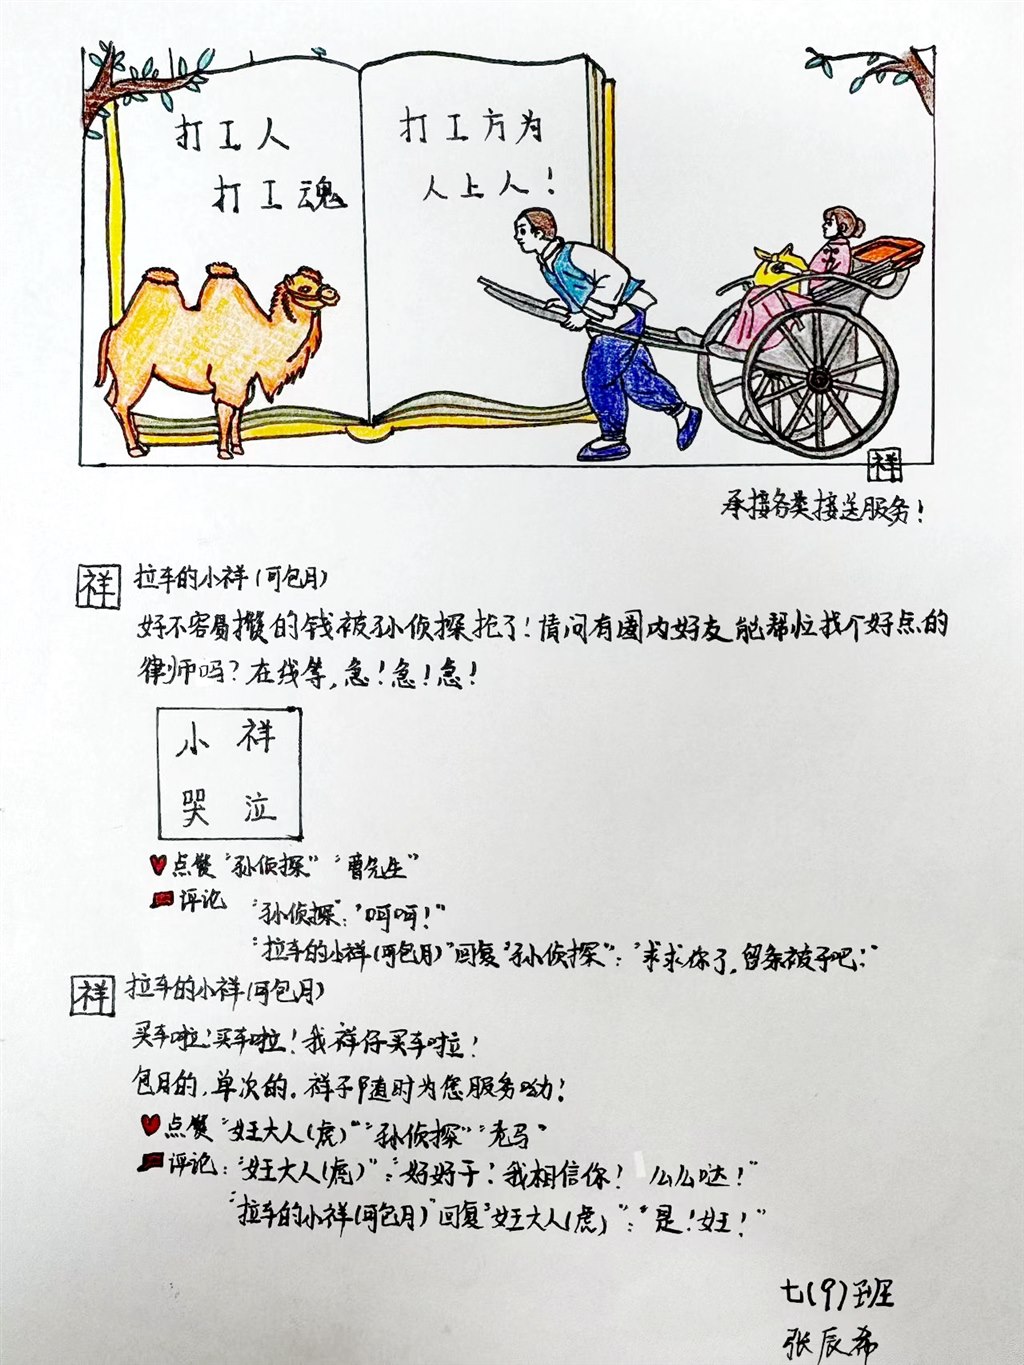 打工人
打工魂
打工方为
人上人！
祥
承接各类接送服务！
祥 拉车的小祥(可包月)
好不容易攒的钱被孙侦探抢了！情问有圈内好友能帮忙找个好点的
律师吗？在线等，急！急！急！
小祥
哭泣
点赞 "孙侦探" "曹先生"
评论 "孙侦探"："呵呵！"
"拉车的小祥(可包月)"回复"孙侦探"："求求你了，留条被子吧！"
祥 拉车的小祥(可包月)
买车啦！买车啦！我祥仔买车啦！
包月的，单次的。祥子随时为您服务呦！
点赞 "女王大人(虎)" "孙侦探" "老马"
评论："女王大人(虎)"："好好干！我相信你！ 么么哒！"
"拉车的小祥(可包月)"回复"女王大人(虎)"："是！女王！"
七(9)班
张辰希